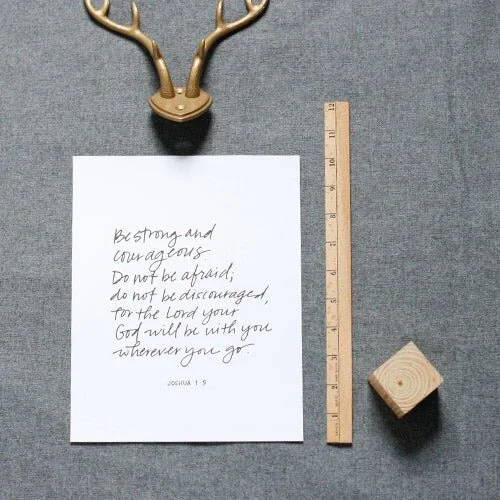 Be strong and
courageous.
Do not be afraid;
do not be discouraged,
for the Lord your
God will be with you
wherever you go.
JOSHUA 1:9
12
11
10
9
8
7
6
5
4
3
2
1